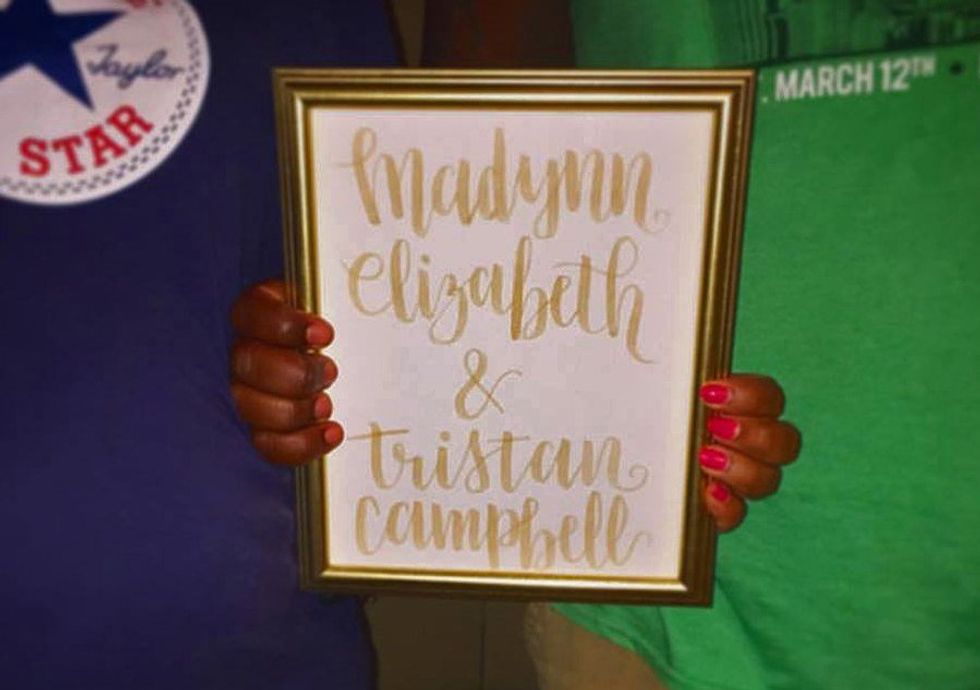 Taylor
STAR
MARCH 12TH
madynn
elizabeth
&
tristan
campbell